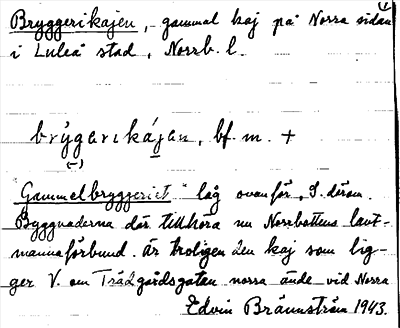 Bryggerikajen, gammal kaj på Norra sidan
i Luleå stad, Norrb. l.
brýgerikájen, bf. m. +
"Gammelbryggeriet" låg ovanför, S. därom.
Byggnaderna där tillhöra nu Norrbottens lant-
mannaförbund. Är troligen den kaj som lig-
ger V. om Trädgårdsgatan norra ände vid Norra
Edvin Brännström 1943.